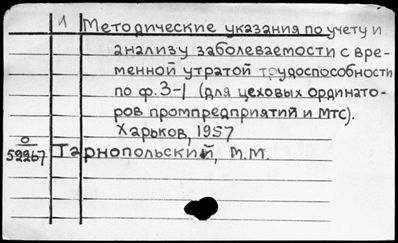 1 Методические указания по учету и
анализу заболеваемости с вре-
менной утратой трудоспособности
по ф. 3-1 (для цеховых ординато-
ров промпредприятий и МТС).
Харьков, 1957
0
59967 Тарнопольский, М.М.